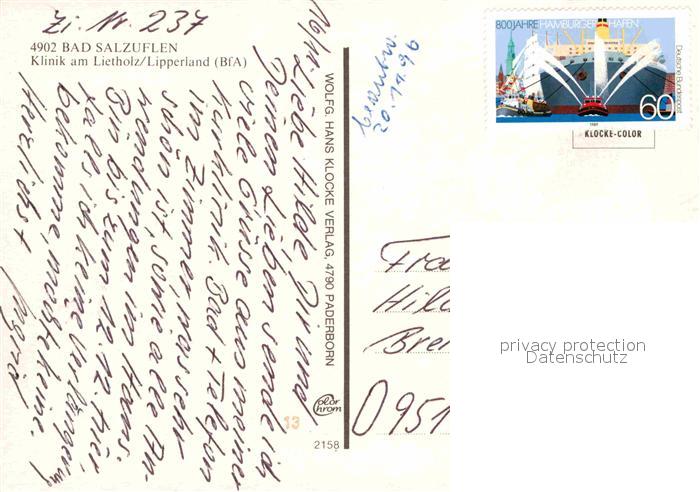 Zi. Nr. 237
4902 BAD SALZUFLEN
Klinik am Lietholz/Lipperland (BfA)
16/11. Liebe Hilde, Dir und
Deinen Lieben sende ich
viele Grüsse aus meiner
Kurklinik. Bad + Telefon
im Zimmer, was sehr
schön ist, sowie alle An-
wendungen im Hause.
Bin bis zum 12.12. hier
falls ich keine Verlängerung
bekomme, möchte keine.
Herzlichst
WOLFG. HANS KLOCKE VERLAG, 4790 PADERBORN
Color
Chrom
13
2158
beantw.
20.
800 JAHRE HAMBURGER HAFEN
Deutsche Bundespost
60
1989
KLOCKE-COLOR
Fra
Hil
Brei
O 951
privacy protection
Datenschutz